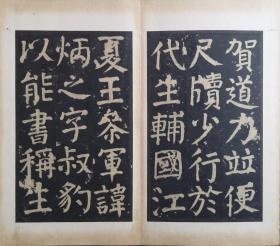 賀道力並便
尺牘少行於
代生輔國江
夏王參軍諱
炳之字叔豹
以能書稱生